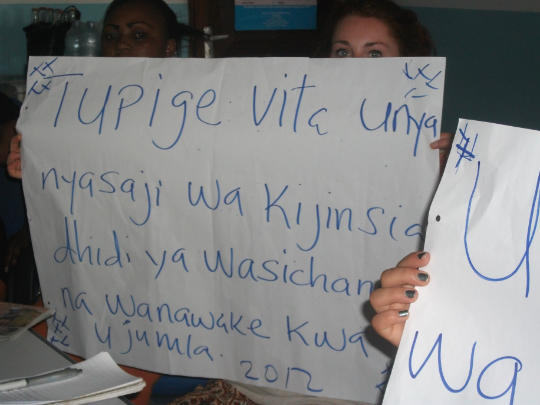 Tupige vita unya
nyasaji wa Kijinsia
dhidi ya wasichan
na wanawake kwa
ujumla. 2012
U
wa